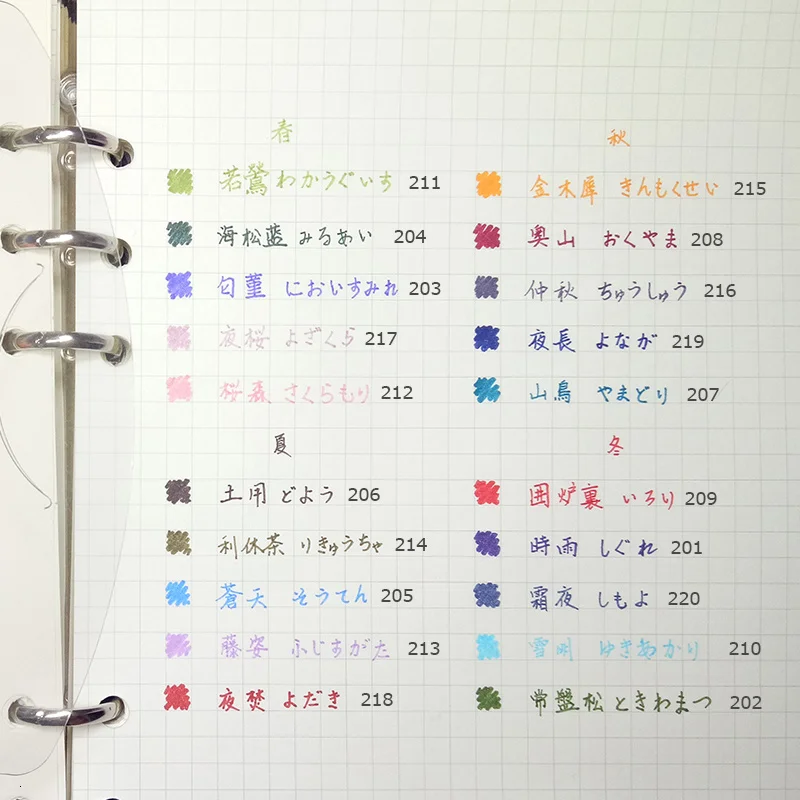 春
若鶯 わかうぐいす 211
海松藍 みるあい 204
匂菫 においすみれ 203
夜桜 よざくら 217
桜森 さくらもり 212
夏
土用 どよう 206
利休茶 りきゅうちゃ 214
蒼天 そうてん 205
藤姿 ふじすがた 213
夜焚 よだき 218
秋
金木犀 きんもくせい 215
奥山 おくやま 208
仲秋 ちゅうしゅう 216
夜長 よなが 219
山鳥 やまどり 207
冬
囲炉裏 いろり 209
時雨 しぐれ 201
霜夜 しもよ 220
雪明 ゆきあかり 210
常盤松 ときわまつ 202